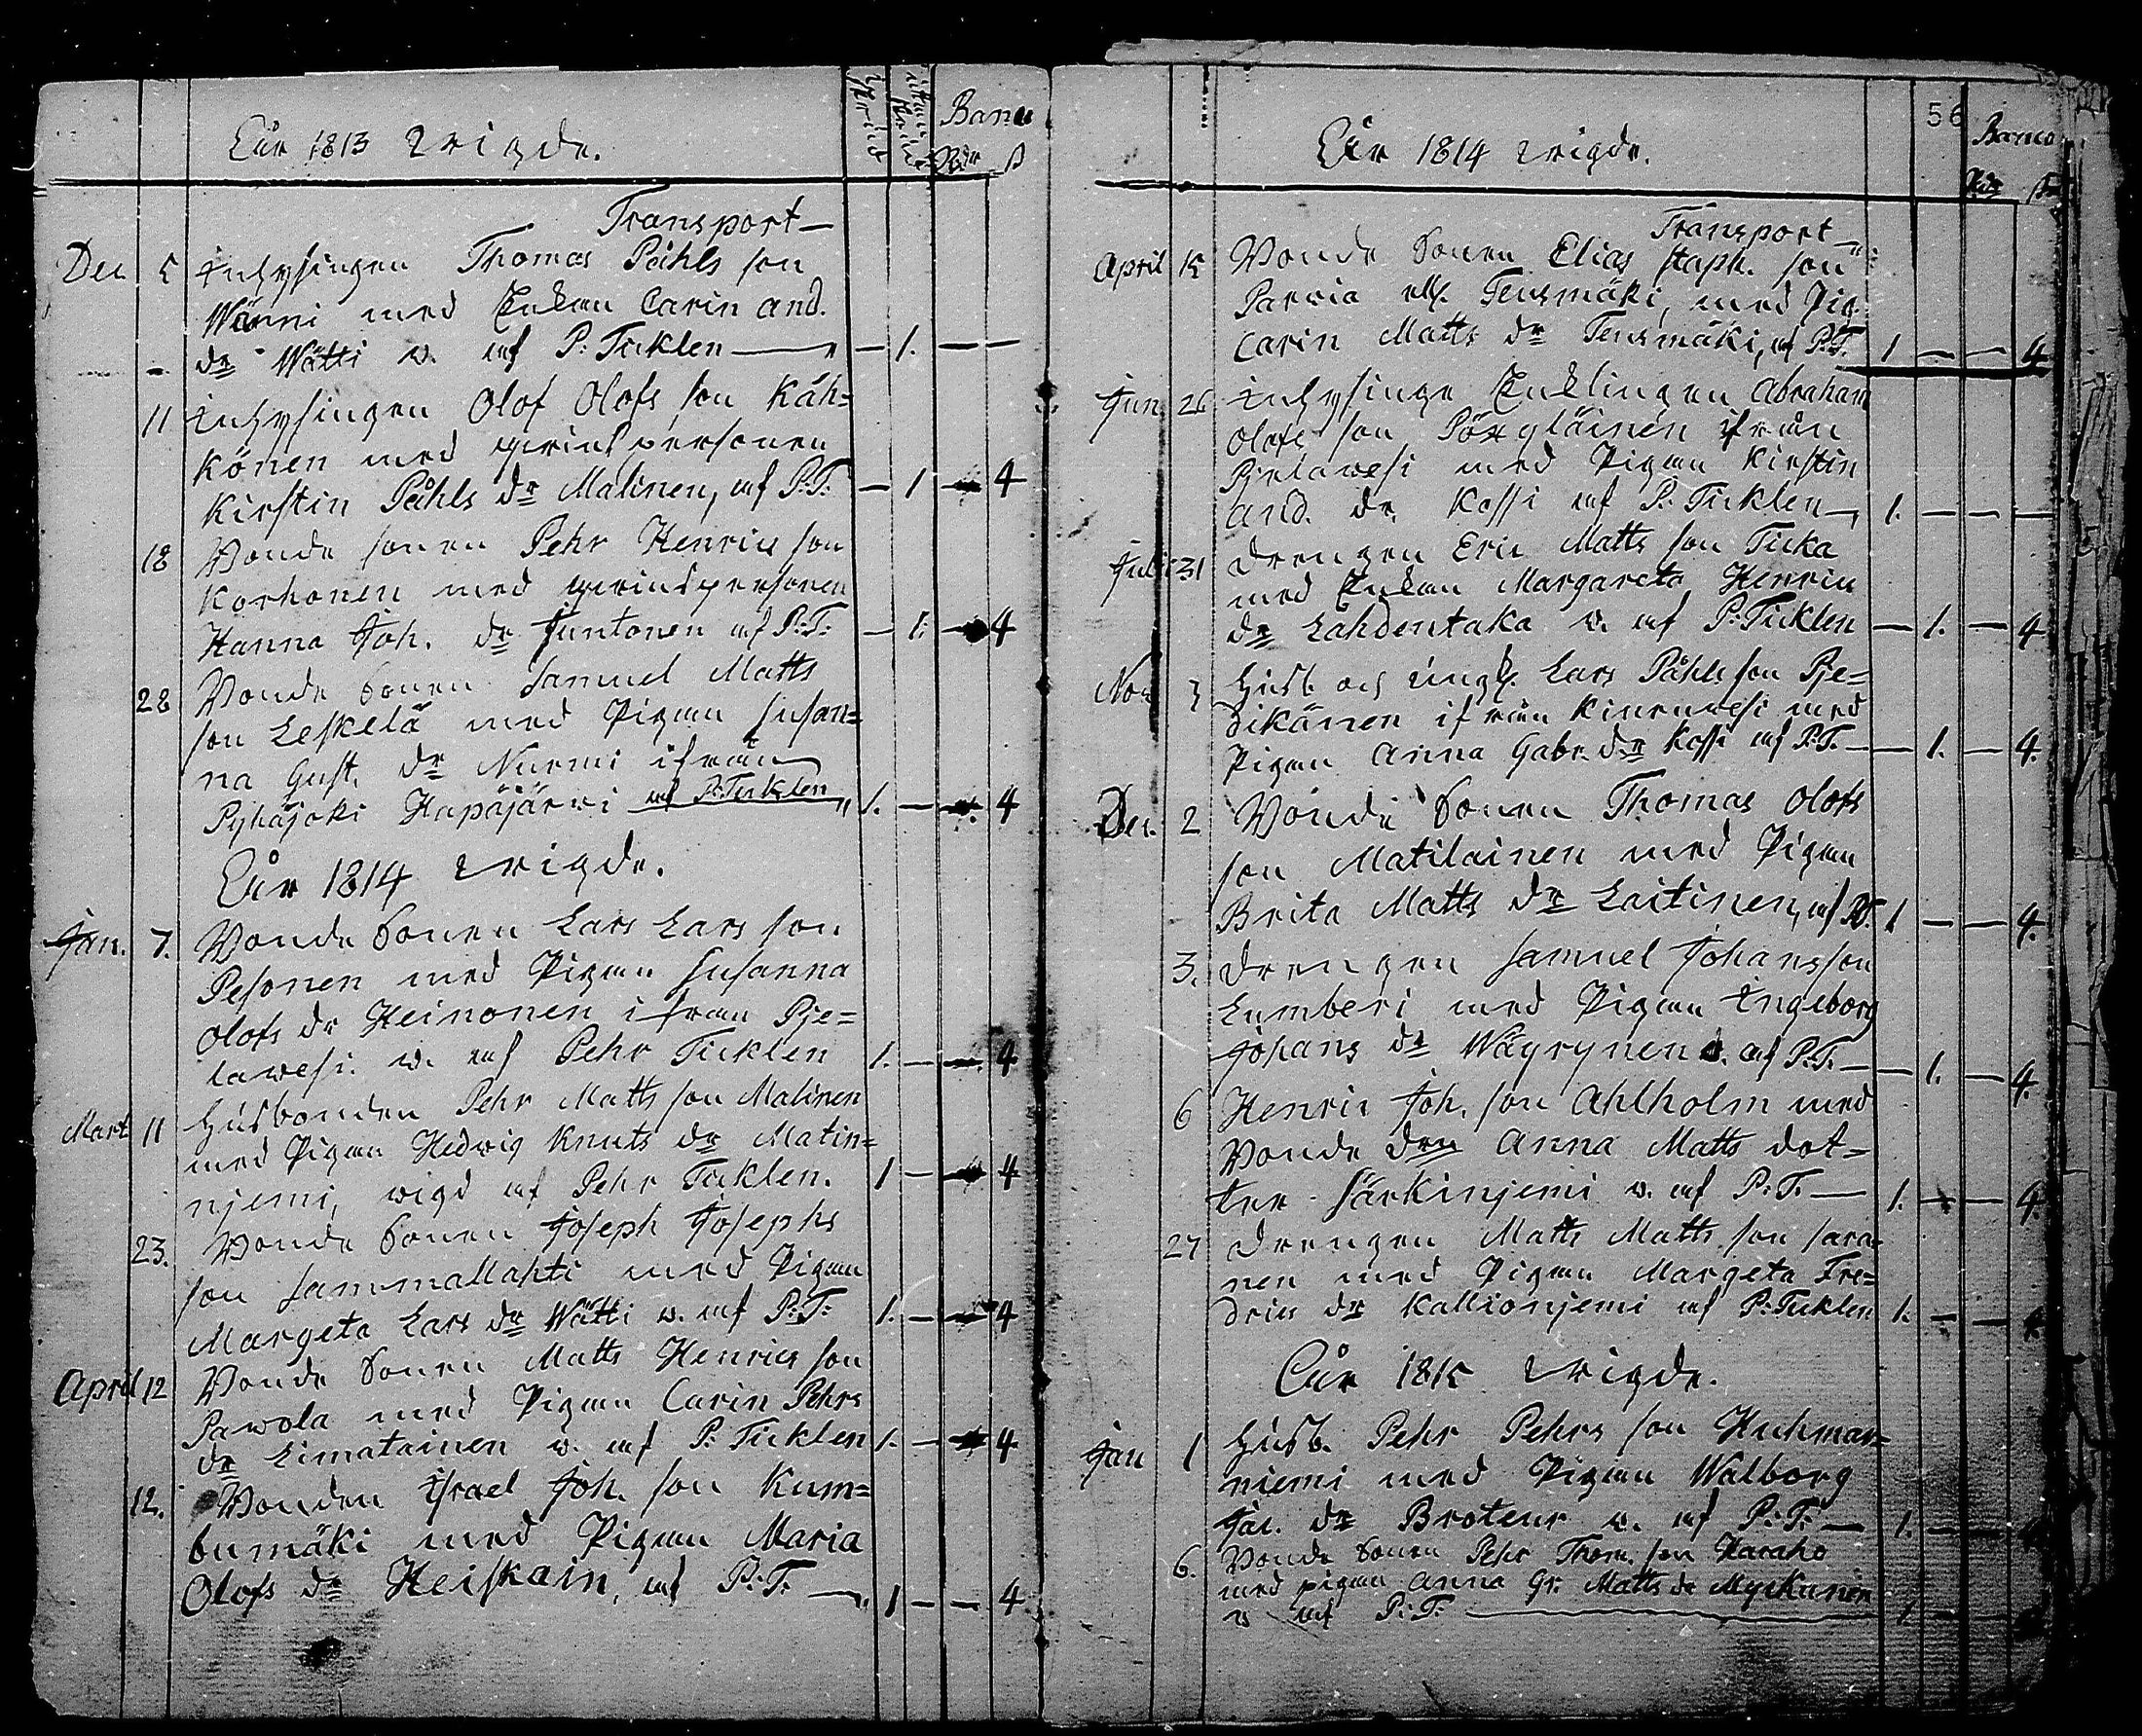 Åhr 1813 wigde.
Banco
Rdr ß
Transport
Dec 5 Inhysingen Thomas Påhls son
Wänni med Enkan Carin And.
dr Wätti w. af P: Ticklen — 1. — —
11 Inhysingen Olof Olofs son Käh=
könen med qvinspersonen
Kirstin Påhls dr Malinen, af P:T: — 1 — 4
18 Bonde sonen Pehr Henrics son
Korhonen med qvinspersonen
Hanna Joh. dr Juntonen af P:T: — 1: — 4
28 Bonde Sonen Samuel Matts
son Leskelä med Pigan Susan=
na Gust. dr Nurmi ifrån
Pyhäjoki Hapäjärwi af P:Ticklen 1. — — 4
Åhr 1814 wigde.
Jan. 7. Bonde Sonen Lars Lars son
Pesonen med Pigan Susanna
Olofs dr Heinonen ifrån Pje=
lawesi. w. af Pehr Ticklen 1. — — 4
Mart 11 Husbonden Pehr Matts son Malinen
med Pigan Hedwig Knuts dr Matin=
njemi, wigd af Pehr Ticklen. 1 — — 4
23. Bonde Sonen Joseph Josephs
son Sammallahti med Pigan
Margeta Lars dr Wätti w. af P:T: 1. — — 4
April 12 Bonde Sonen Matts Henrics son
Pawola med Pigan Carin Pehrs
dr Limatainen w. af P. Ticklen 1. — — 4
12. Bonden Israel Joh. son Kum=
bumäki med Pigan Maria
Olofs dr Heiskain, af P:T: — 1 — — 4
56
Åhr 1814 wigde.
Banco
Rdr ß
Transport
April 15 Bonde Sonen Elias Staph. son
Parwia ell. Tensmäki, med Pig.
Carin Matts dr Tensmäki, af P:T. 1 — — 4
Jun 26 Inhysinge Enklingen Abraham
Olofs son ifrån
Pjelawesi med Pigan Kirstin
And. dr. Kossi af P. Ticklen 1. — — —
Juli 31 Drengen Eric Matts son Ticka
med Enkan Margareta Henric
dr Lahdentaka w. af P:Ticklen — 1. — 4
Nov 3 Husb. och ungk. Lars Påhls son Pje=
dikänen ifrån Kiuruwesi med
Pigan Anna Gabr. dr Kossi af P:T. — 1. — 4.
Dec. 2 Bonde Sonen Thomas Olofs
son Matilainen med Pigan
Brita Matts dr Laitinen, af P.T. 1 — — 4.
3. Drengen Samuel Johans son
Lumberi med Pigan Ingeborg
Johans dr Wäyrynen w. af P:T: — 1. — 4.
6 Henric Joh. son Ahlholm med
Bonde Anna Matts dot=
ter Särkinjemi w. af P:T. — 1. — 4.
27 Drengen Matts Matts son Sara=
nen med Pigan Margeta Fre=
drics dr Kallionjemi af P:Ticklen 1. — — 4.
Åhr 1815 wigde.
Jan 1 Husb. Pehr Pehrs son Huhmar=
niemi med Pigan Walborg
Jac. dr Broteur w. af P:T: — 1. — —
6. Bonde Sonen Pehr Thom. son
med pigan Anna Gr. Matts dr Myckänen
w af P:T: 1 —